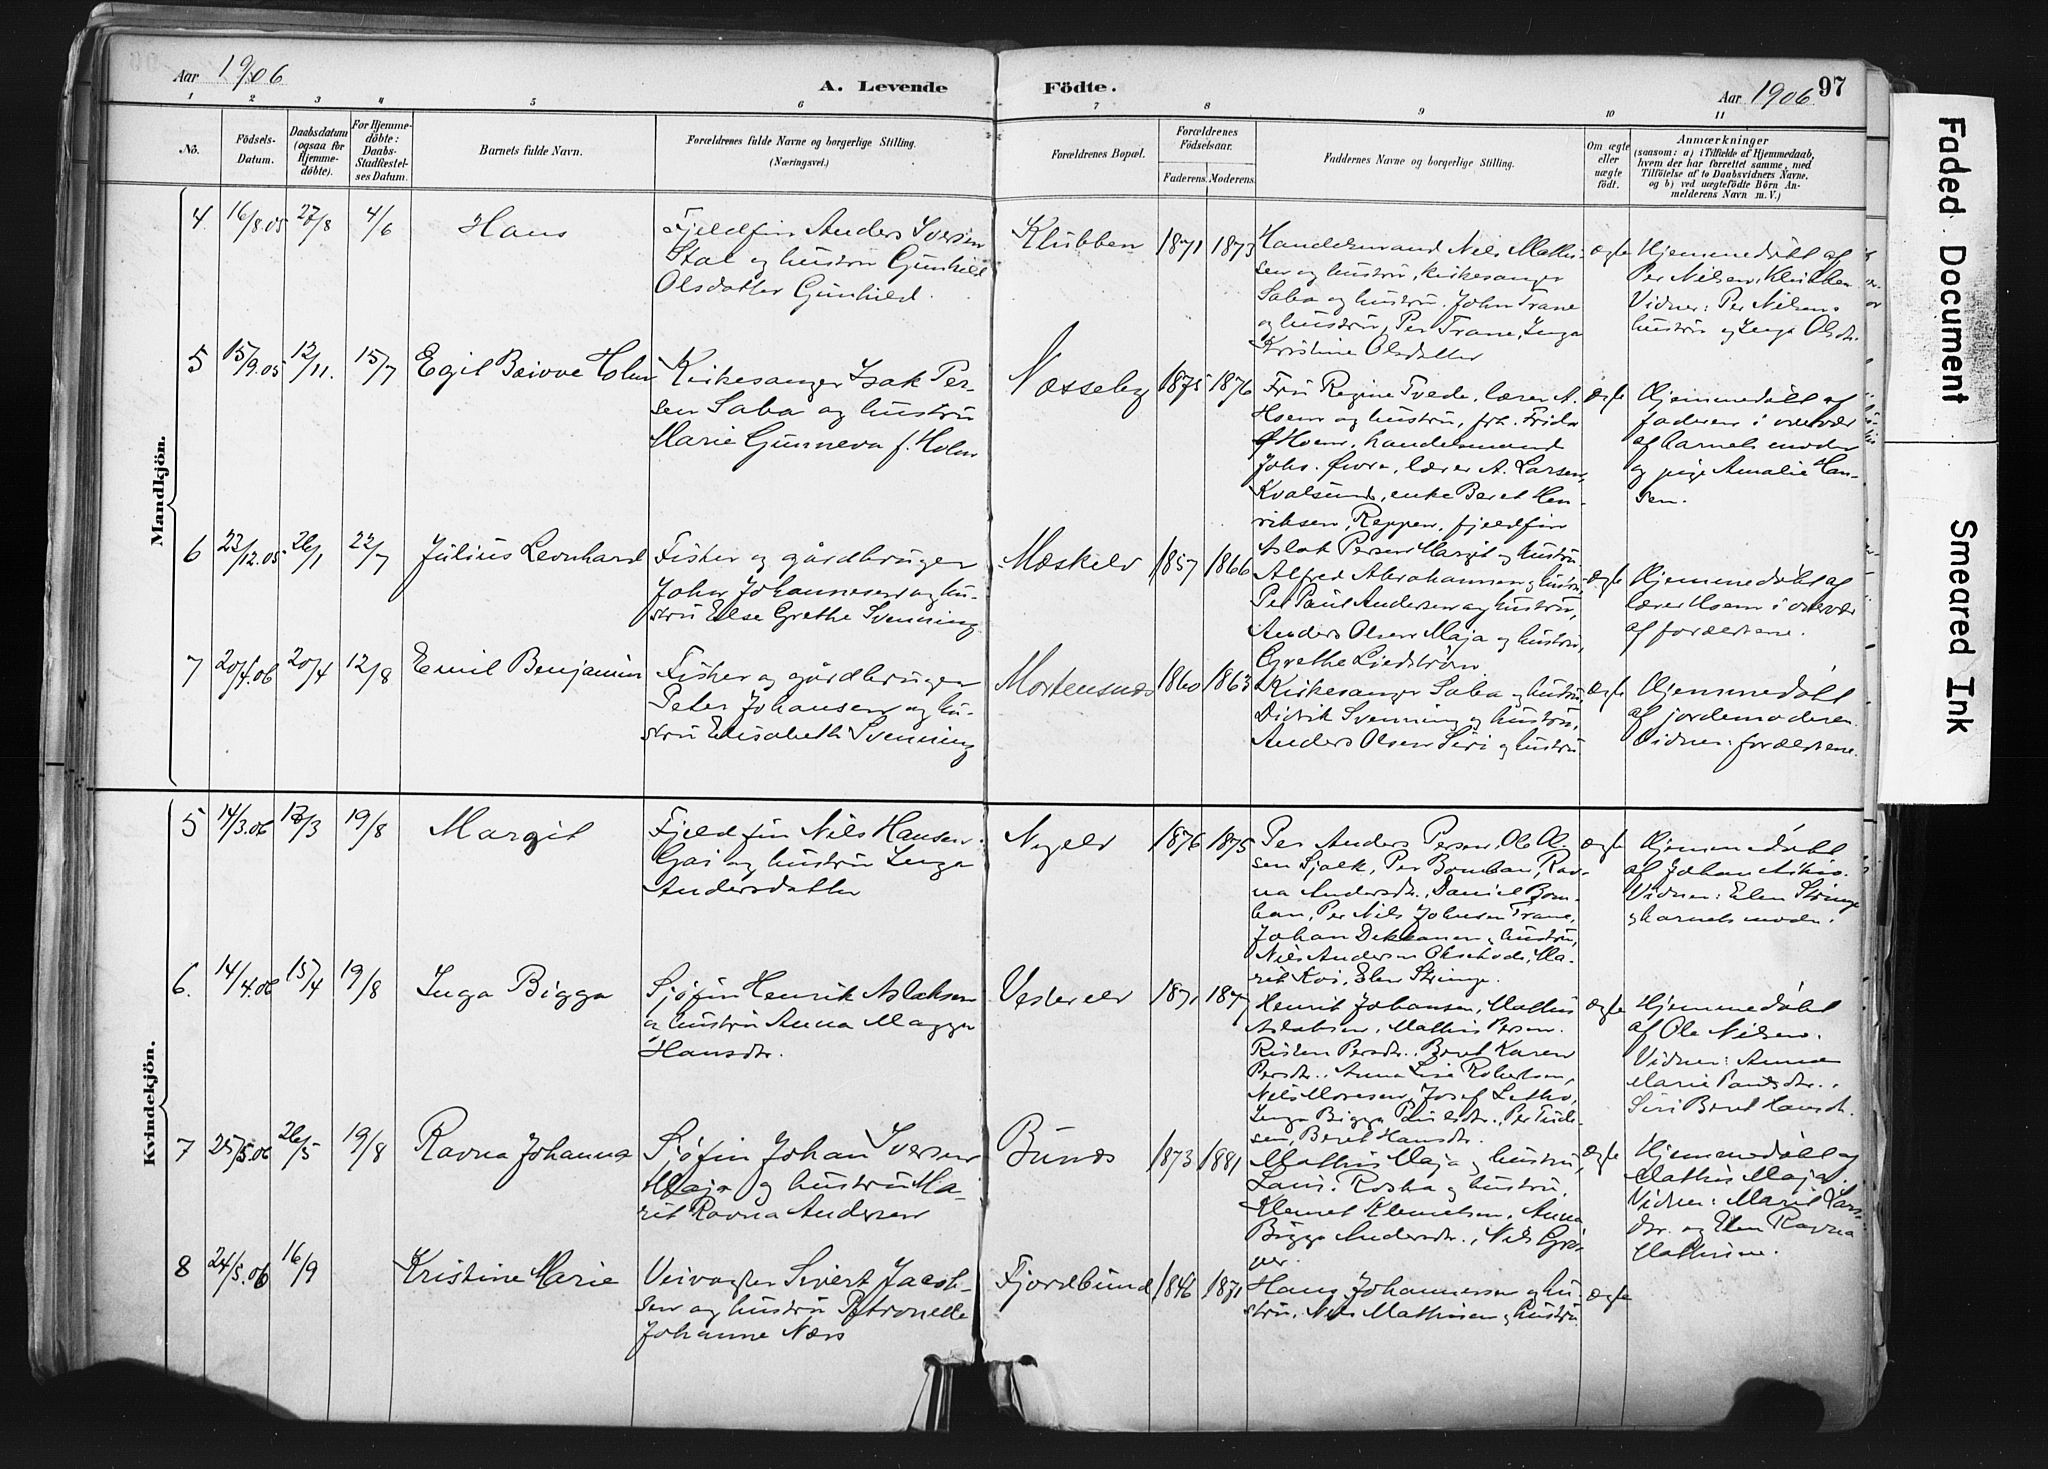 Aar 1906
A. Levende
Födte.
Aar 1906
97
1 2 3 4 5 6 7 8 9 10 11
No.
Födsels-
Datum.
Daabsdatum
(ogsaa for
Hjemme-
döbte).
For Hjemme-
döbte:
Daabs-
Stadfæstel-
ses Datum.
Barnets fulde Navn.
Forældrenes fulde Navne og borgerlige Stilling.
(Næringsvei.)
Forældrenes Bopæl.
Forældrenes
Födselsaar.
Faderens. Moderens.
Faddernes Navne og borgerlige Stilling.
Om ægte
eller
uægte
födt.
Anmærkninger
(saasom: a) i Tilfælde af Hjemmedaab,
hvem der har forrettet samme, med
Tilföielse af to Daabsvidners Navne,
og b) ved uægtefödte Börn An-
melderens Navn m. V.)
Mandkjön.
4. 16/8.05 27/8 4/6 Hans
Fjeldfin Anders Iversen
Stal og hustru Gunhild
Olsdatter Gunhild.
Klubben 1871 1873
Handelsmand Nils Mathi-
sen og hustru, kirkesanger
Saba og hustru, John Trane
og hustru, Per Trane, Inga
Kristine Olsdatter
ægte
Hjemmedöbt af
Per Nilsen, Klubben
Vidner: Per Nilsens
hustru og Inga Olsdtr.
5 15/9.05 12/11. 15/7 Egil Beivve Holm
Kirkesanger Isak Per-
sen Saba og hustru
Marie Gunneva f. Holm
Næsseby 1875 1876
Fru Regine Tvede, lærer A.
Hoem og hustru, frk. Frida
Hoem, handelsmand
Johs. Øvre, lærer A. Larsen,
Kvalsund, enke Beret Hen-
riksen, Reppen, fjeldfin
Aslak Persen Margit og hustru
ægte
Hjemmedöbt af
faderen i overvær
af barnets moder
og pige Amalie Han-
sen.
6 22/12.05 26/1 22/7 Julius Leonhard
Fisker og gårdbruger
John Johannesen og hu-
stru Else Grethe Svenning
Mæskelv 1857 1866
Alfred Abrahamsen og hustru,
Per Paul Andersen og hustru,
Anders Olsen Maja og hustru,
Grethe Liedström
ægte
Hjemmedöbt af
lærer Hoem i overvær
af forældrene.
7 20/4.06 20/4 12/8 Emil Benjamin
Fisker og gårdbruger
Peter Johansen og hu-
stru Elisabeth Svenning
Mortensnæs 1860 1863
Kirkesanger Saba og hustru
Didrik Svenning og hustru,
Anders Olsen Siri og hustru
ægte
Hjemmedöbt
af jordemoderen.
Vidner: forældrene.
Kvindekjön.
5 14/3.06 18/3 19/8 Margit
Fjeldfin Nils Hansen
Gai og hustru Inga
Andersdatter
Nyelv 1876 1875
Per Anders Persen, Ole Ol-
sen Sjalk, Per Bomban, Rav-
na Andersdtr., Daniel Bom-
ban, Per Nils Johnsen Trane,
Johan Dikkanen og hustru,
Nils Andersen, Ma-
rit Koi, Elen Stringe.
ægte
Hjemmedöbt
af Johan Aikio.
Vidner: Elen Stringe
og barnets moder.
6. 14/4.06 15/4 19/8 Inga Bigga
Sjøfin Henrik Aslaksen
og hustru Anna Magga
Hansdtr.
Vesterelv 1871 1877
Henrik Johansen, Mathis
Aslaksen, Mathis Persen
Risten Persdtr., Beret Karen
Persdtr., Anna Lisa Robertsen,
Nils Moresen, Josef Letho,
Inga Bigga Paulsdtr., Per Tude-
sen, Beret Hansdtr.
ægte
Hjemmedöbt
af Ole Nilsen.
Vidner: Anna
Marie Paulsdtr.,
Siri Beret Hansdt.
7 25/5.06 26/5 19/8 Ravna Johanna
Sjøfin Johan Iversen
Maja og hustru Ma-
rit Ravna Andersen
Bunæs 1873 1881
Mathis Maja og hustru,
Lars Roska og hustru,
Klemet Klemetsen, Anna
Bigga Andersdtr., Nils Grø-
ver.
ægte
Hjemmedöbt af
Mathis Maja.
Vidner: Marit Lars-
dtr. og Elen Ravna
Mathisine.
8 24/5.06 16/9 Kristine Marie
Veivogter Sivert Jacob-
sen og hustru Petronelle
Johanne Næss
Fjordbund 1846 1871
Hans Johannesen og hu-
stru, Nils Mathisen og hustru
ægte
Faded Document
Smeared Ink